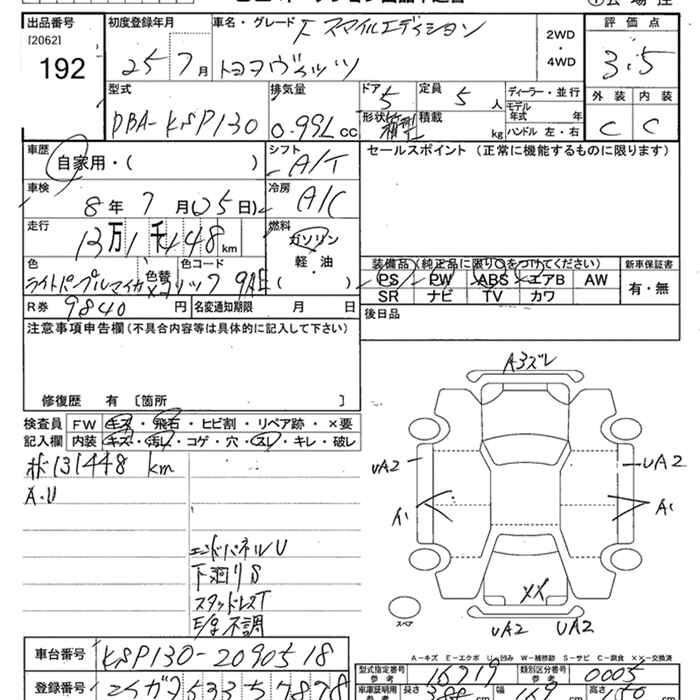 出品番号 初度登録年月 車名・グレード F スマイルエディション 評価点
[2062]
192
25 7月 トヨタヴィッツ
2WD
・
4WD
3.5
外装 内装
C C
型式 排気量 ドア 定員 ディーラー・並行
DBA-KSP130 0.99L cc 5 5人
モデル年式 年
形状 箱型 積載 kg ハンドル 左・右
車歴 シフト セールスポイント (正常に機能するものに限ります)
自家用・( ) A/T
車検 冷房
8年 7月(05日) A/C
走行 燃料
13万1千448km ガソリン
軽・油
( )
色 色替 色コード
ライトパープルマイカメタリック 9AE
装備品(純正品に限り○をつけてください) 新車保証書
PS PW ABS エアB AW
SR ナビ TV カワ
有・無
R券 9840円 名変通知期限 月 日
後日品
注意事項申告欄(不具合内容等は具体的に記入して下さい)
修復歴 有 [箇所 ]
検査員 FW キズ・飛石・ヒビ割・リペア跡・×要
記入欄 内装 キズ・汚レ・コゲ・穴・スレ・キレ・破レ
131448 km
A・U
エンドパネルU
下廻りS
スタッドレスT
E/g不調
A3ズレ
UA2
UA2
A1
A1
XX
スペア
UA2 UA2
A-キズ E-エクボ U-凹み W-補修跡 S-サビ C-腐食 ××-交換済
車台番号 KSP130-2090518
型式指定番号 参考 16919 類別区分番号 参考 0005
登録番号
車庫証明用 参考 長さ 388cm 幅 169cm